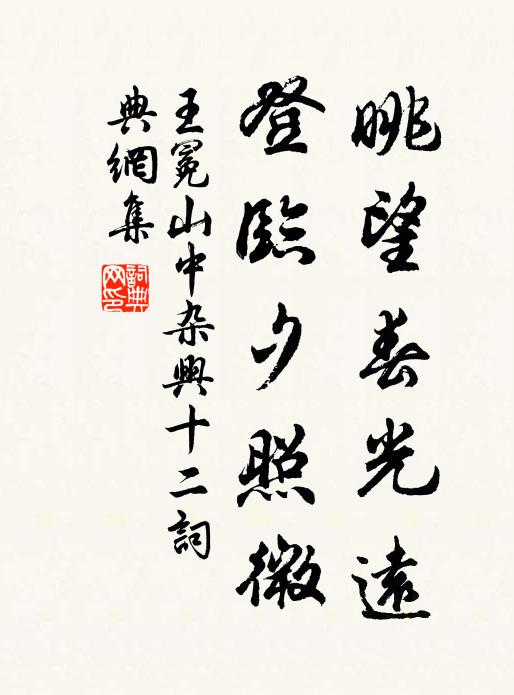 眺望春光遠
登臨夕照微
王冕山中杂興十二詞
典網集
詞典
网印